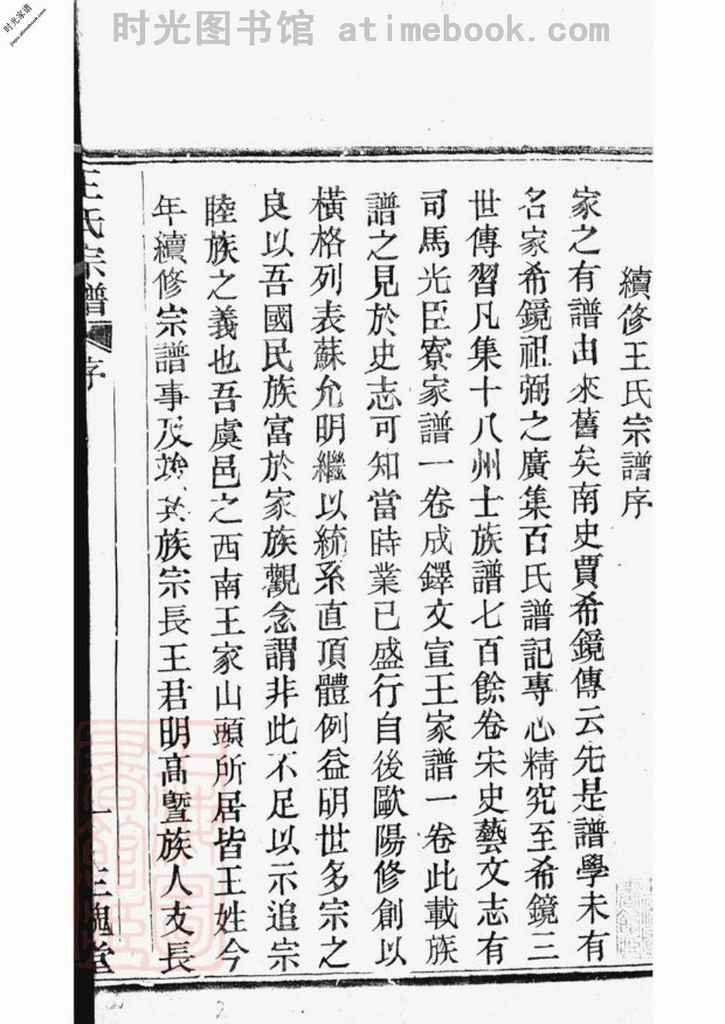 时光图书馆 atimebook.com
时光家谱
續修王氏宗譜序
家之有譜由來舊矣南史賈希鏡傳云先是譜學未有
名家希鏡祖弼之廣集百氏譜記專心精究至希鏡三
世傳習凡集十八州士族譜七百餘卷宋史藝文志有
司馬光臣寮家譜一卷成鐸文宣王家譜一卷此載族
譜之見於史志可知當時業已盛行自後歐陽修創以
橫格列表蘇允明繼以統系直頂體例益明世多宗之
良以吾國民族富於家族觀念謂非此不足以示追宗
睦族之義也吾虞邑之西南王家山頭所居皆王姓今
年續修宗譜事及竣其族宗長王君明高暨族人友長
王氏宗譜
序
一
三槐堂